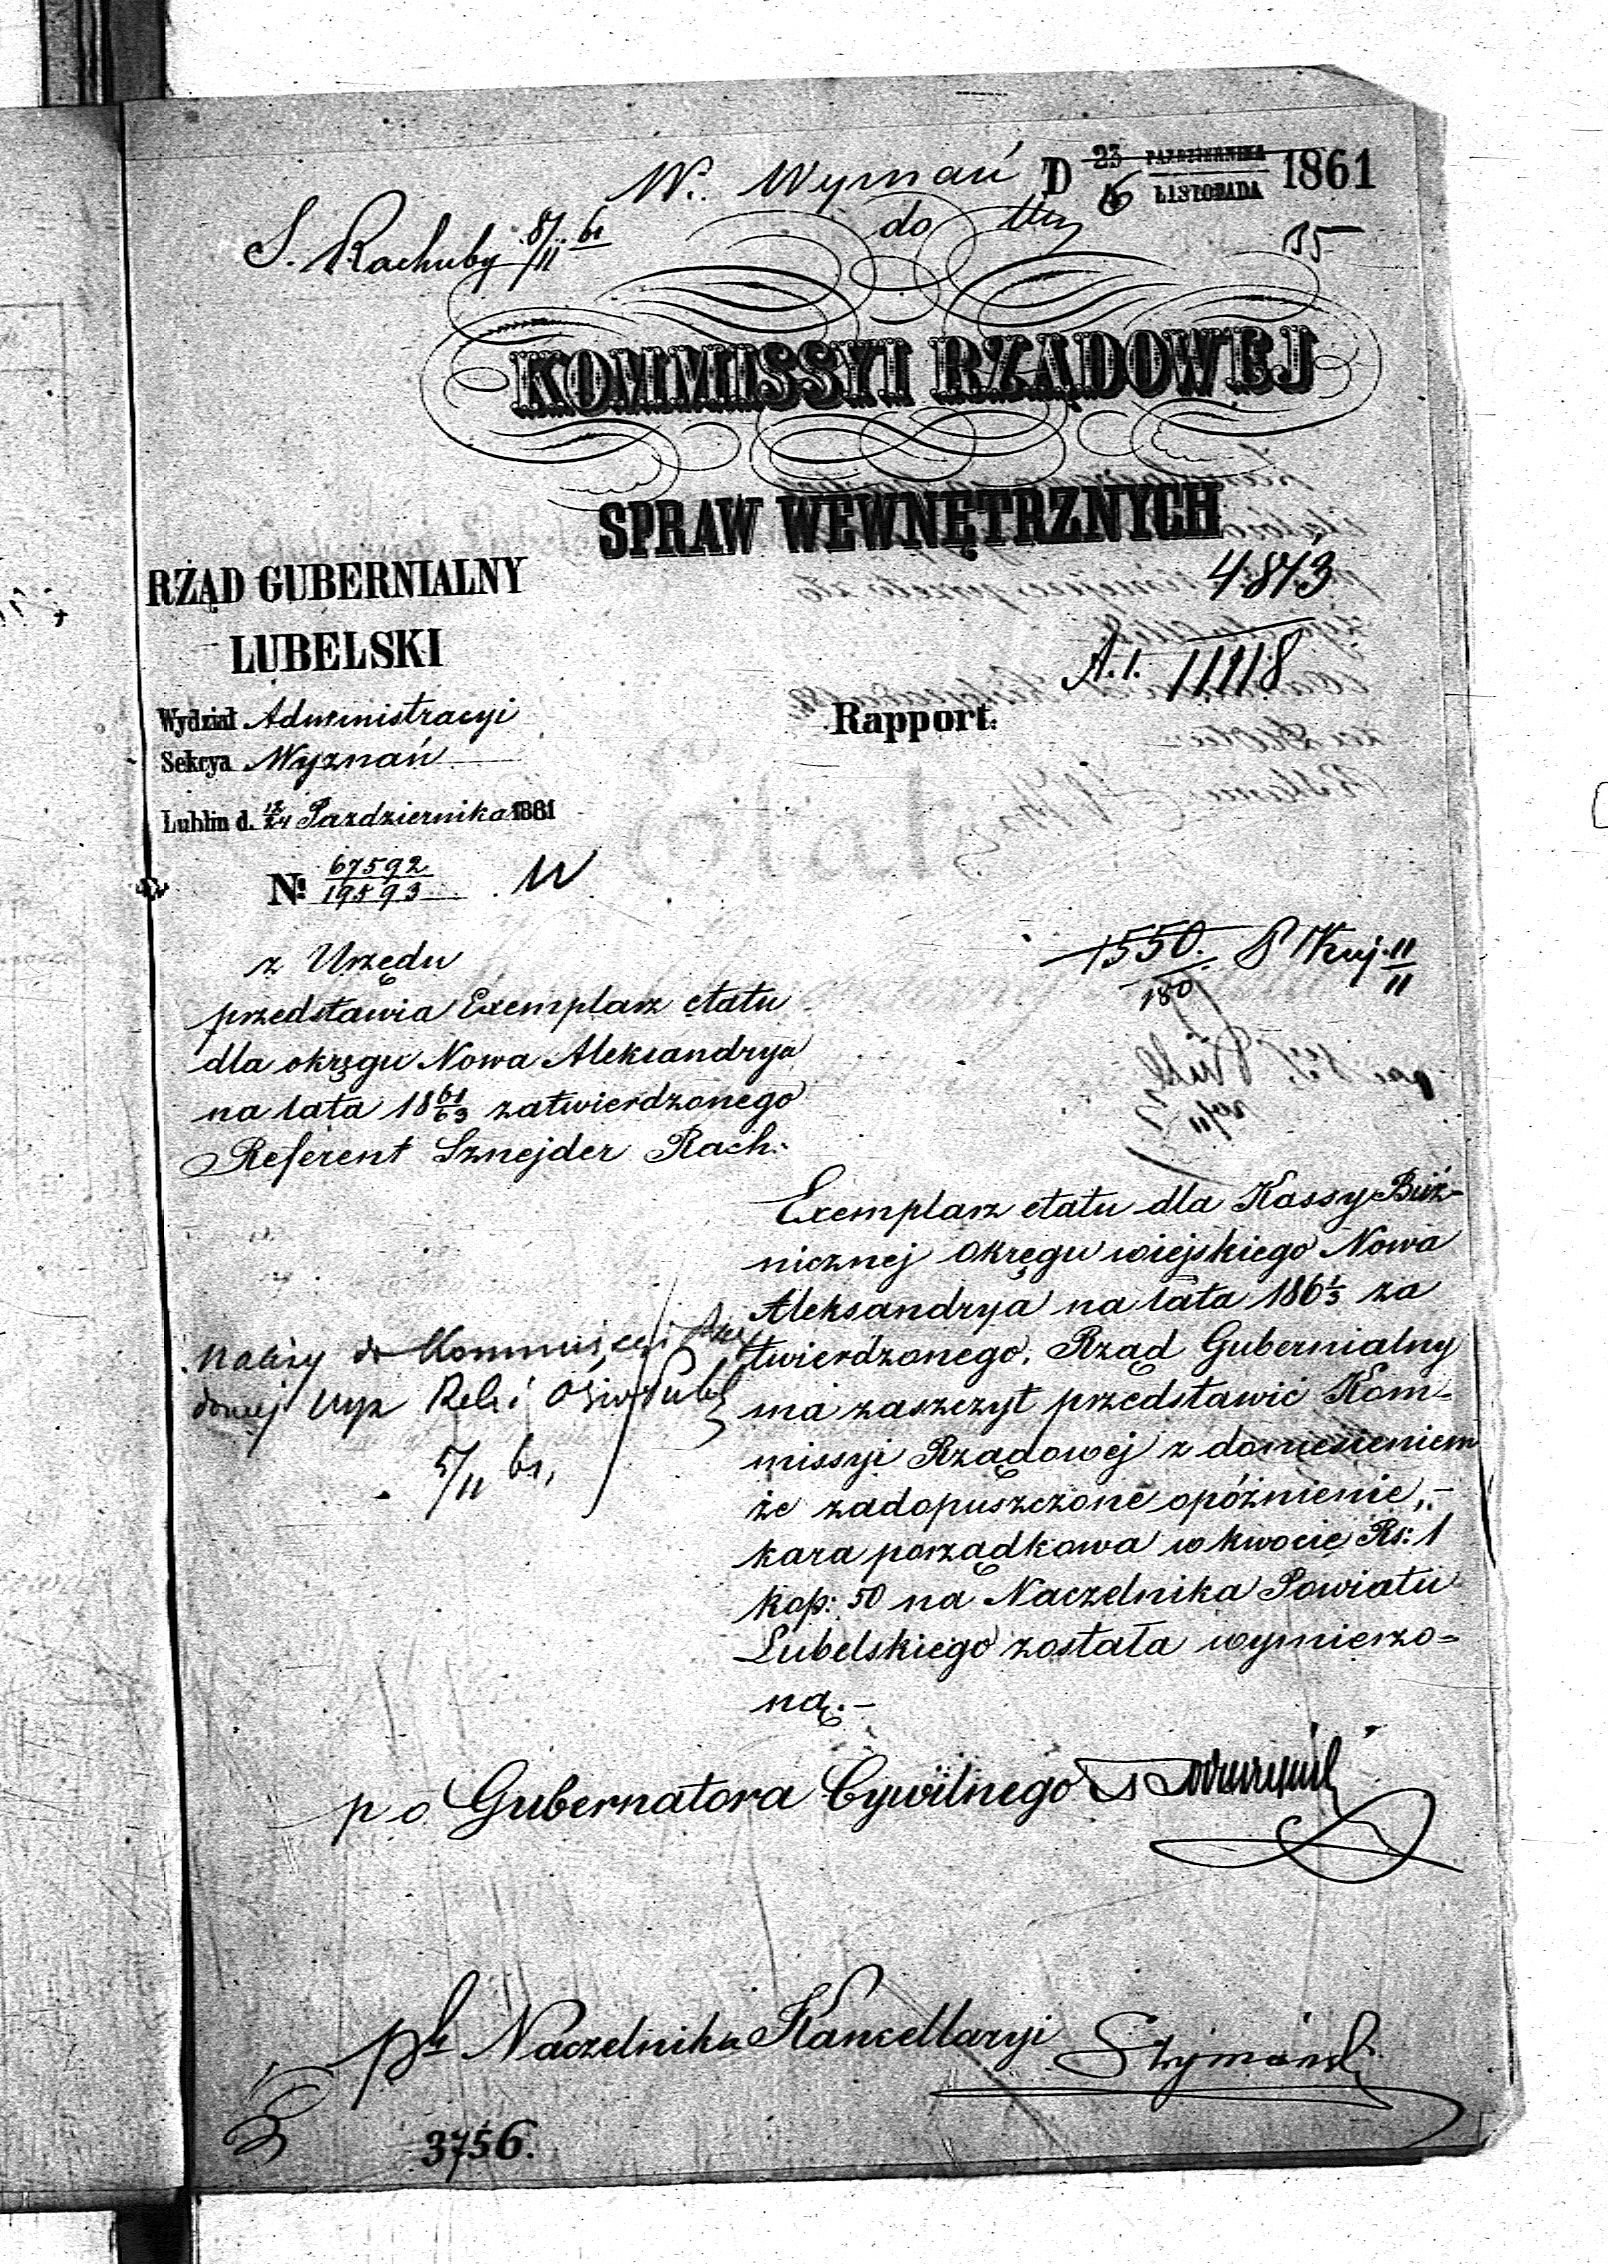 W. Wyznań D 23 PAZDZIERNIKA 1861
6 LISTOPADA
S. Rachuby 8/11 61
do
15
KOMMISSYI RZĄDOWEJ
SPRAW WEWNĘTRZNYCH
RZĄD GUBERNIALNY
LUBELSKI
4873
A.1. 11118
Wydział Administracyi
Rapport.
Sekcya Wyznań
Lublin d. 12/24 Pazdziernika 1861
N: 67592/19593 W
1550. 11/11
180
z Urzędu
przedstawia Exemplarz etatu
dla okręgu Nowa Aleksandrya
na lata 18 61/63 zatwierdzonego
Referent Sznejder Rach:
Exemplarz etatu dla Kassy Bóż-
nicznej okręgu wiejskiego Nowa
Aleksandrya na lata 186 1/3 za
twierdzonego, Rząd Gubernialny
ma zaszczyt przedstawić Kom-
missyi Rządowej z doniesieniem
że zadopuszczone opóźnienie,-
kara porządkowa w kwocie Rs: 1
kop: 50 na Naczelnika Powiatu
Lubelskiego została wymierzo=
ną.-
Należy do Kommissyi Rzą
dowej Wyz Rel: i Oświ Publ
5/11 61,
p o Gubernatora Cywilnego
Naczelnika Kancellaryi
3756.